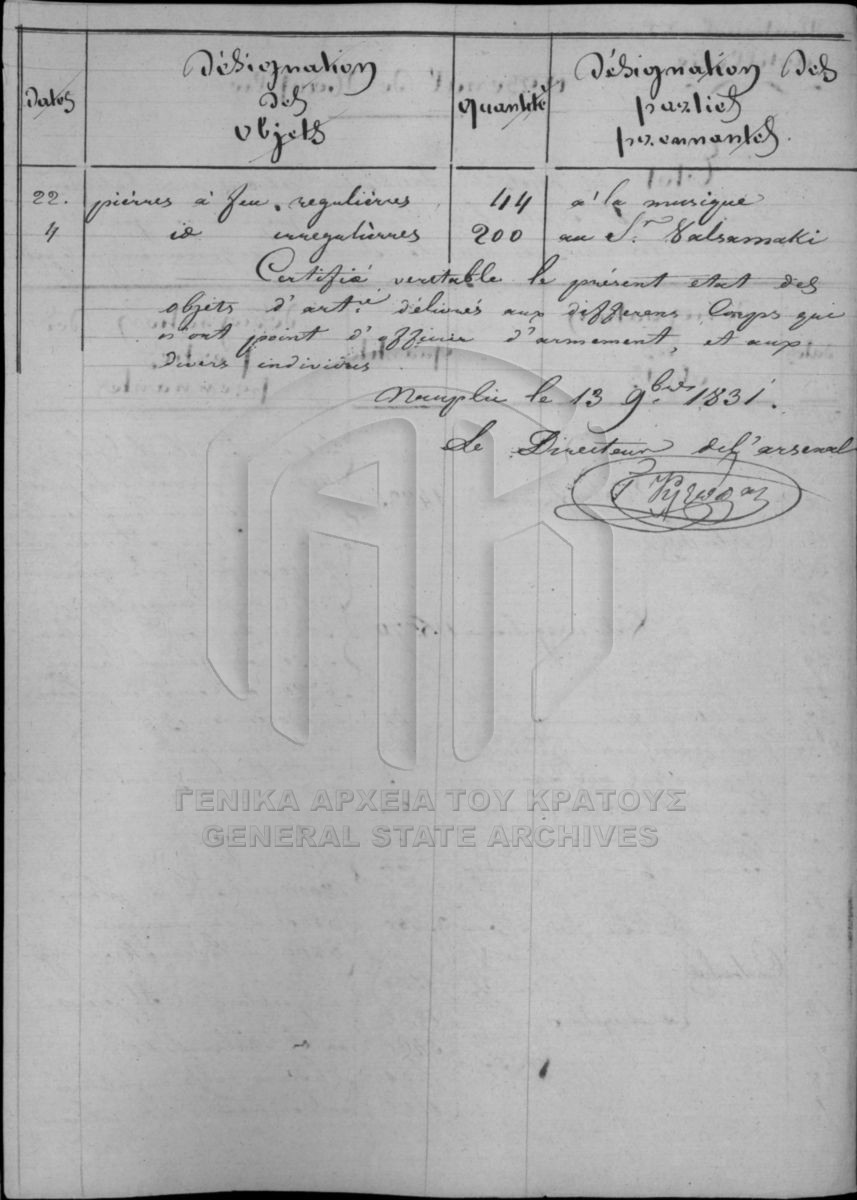 dates
désignation
des
objets
quantité
désignation des
parties
prennantes.
22. pièrres à feu regulières 44 à la musique
4 id irregulièrres 200 au Sr. Valsamaki
Certifié veretable le présent etat des
objets d'artrie délivrés aux differens Corps qui
n'ont point d'officier d'armement, et aux
divers individues
Nauplie le 13 9bre 1831.
Le Directeur de l'arsenal
ΓΕΝΙΚΑ ΑΡΧΕΙΑ ΤΟΥ ΚΡΑΤΟΥΣ
GENERAL STATE ARCHIVES